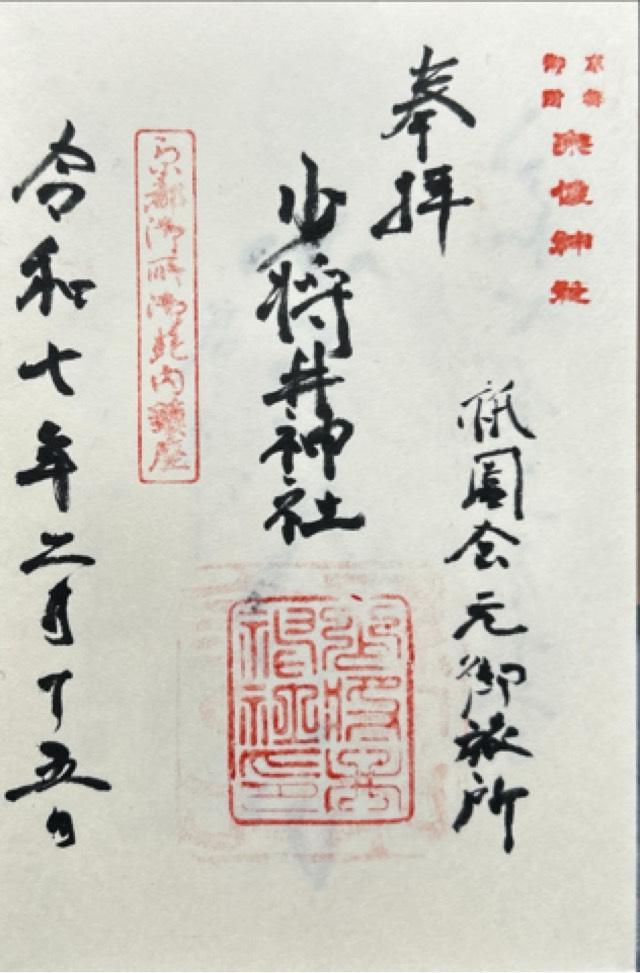 京都
御苑
宗像神社
奉拝
祇園会元御旅所
少将井神社
少将井
神社印
京都御所御苑内鎮座
令和七年二月十五日